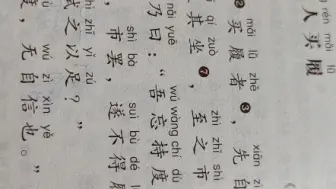 rén mǎi lǚ
人买履
mǎi lǚ zhě xiān zì
买履者❸，先自
qí zuò zhì zhī shì
其坐❼，至之市
nǎi yuē wú wàng chí dù
乃曰：“吾忘持度
shì bà suì bù dé
市罢，遂不得
shì zhī yǐ zú
试之以足？”
wú zì xìn yě
度，无自信也。”